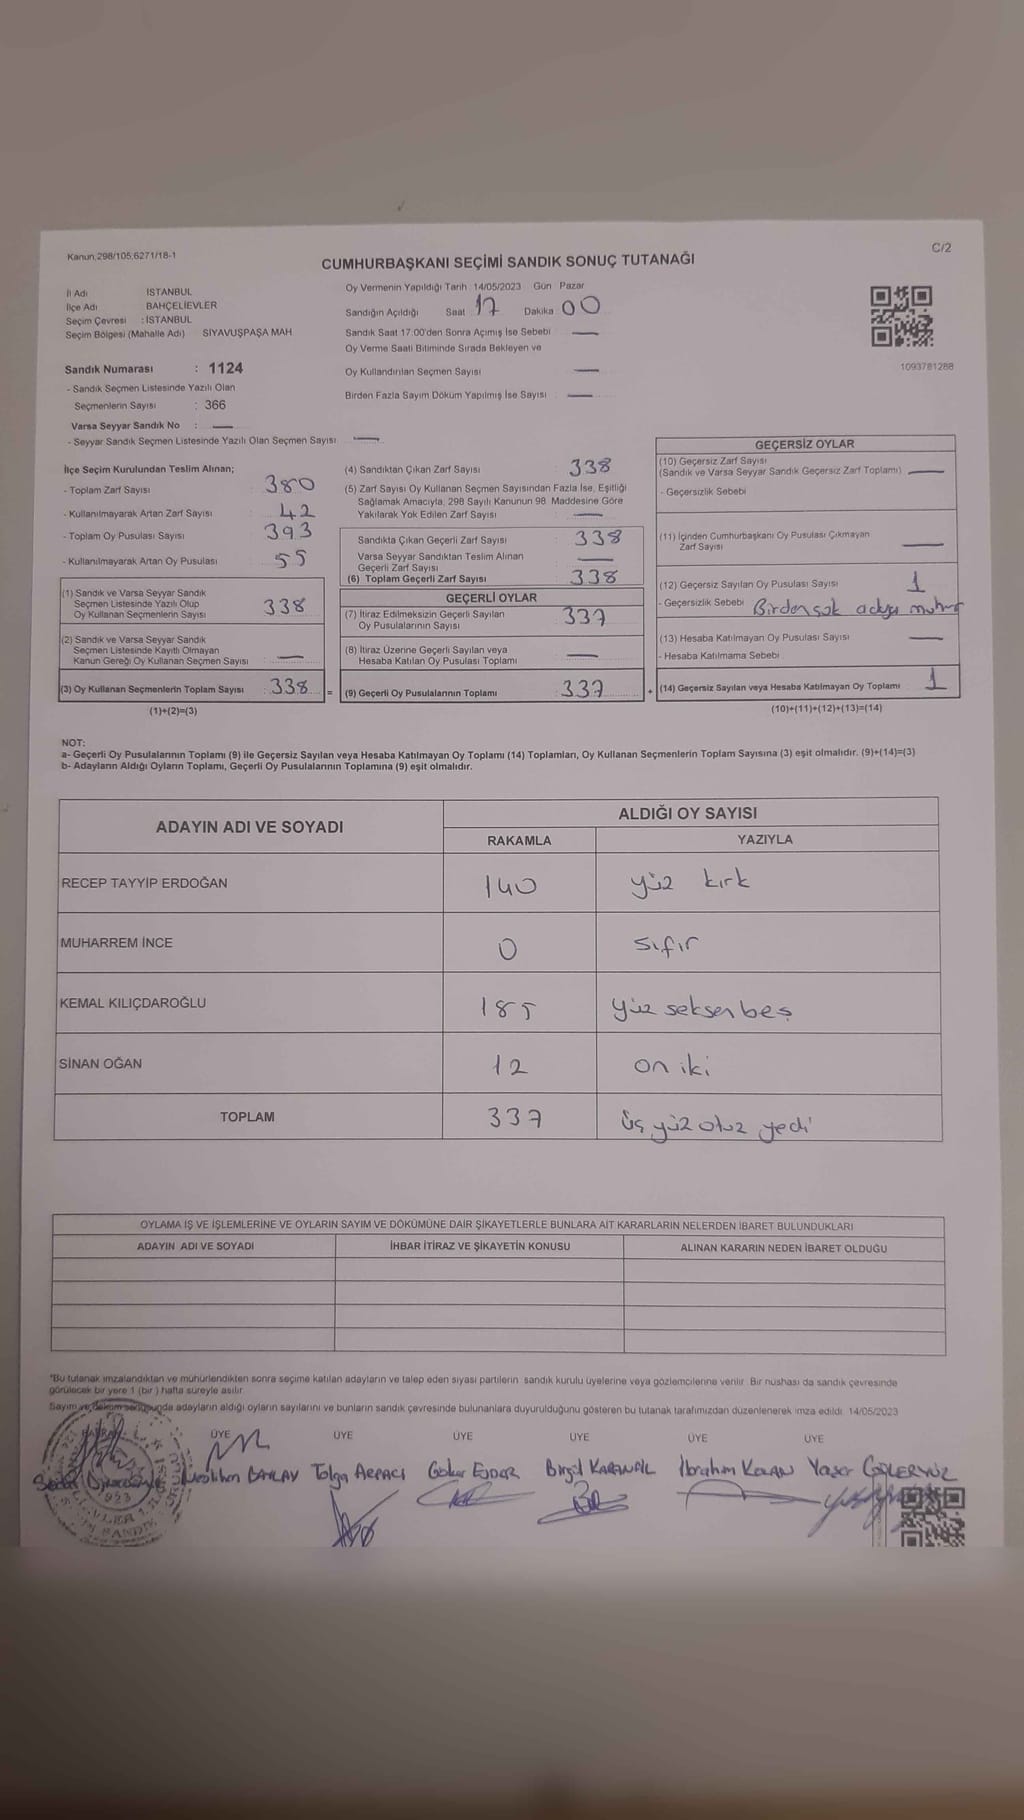 Kanun;298/105;6271/18-1
C/2
CUMHURBAŞKANI SEÇİMİ SANDIK SONUÇ TUTANAĞI
İl Adı İSTANBUL
İlçe Adı BAHÇELİEVLER
Seçim Çevresi : İSTANBUL
Seçim Bölgesi (Mahalle Adı) SİYAVUŞPAŞA MAH
Sandık Numarası : 1124
- Sandık Seçmen Listesinde Yazılı Olan
Seçmenlerin Sayısı : 366
Varsa Seyyar Sandık No : —
- Seyyar Sandık Seçmen Listesinde Yazılı Olan Seçmen Sayısı —
Oy Vermenin Yapıldığı Tarih 14/05/2023 Gün Pazar
Sandığın Açıldığı Saat 17 Dakika 00
Sandık Saat 17:00'den Sonra Açımış İse Sebebi —
Oy Verme Saati Bitiminde Sırada Bekleyen ve
Oy Kullandırılan Seçmen Sayısı —
Birden Fazla Sayım Döküm Yapılmış İse Sayısı —
1093781288
İlçe Seçim Kurulundan Teslim Alınan;
- Toplam Zarf Sayısı 380
- Kullanılmayarak Artan Zarf Sayısı 42
- Toplam Oy Pusulası Sayısı 393
- Kullanılmayarak Artan Oy Pusulası 55
(1) Sandık ve Varsa Seyyar Sandık
Seçmen Listesinde Yazılı Olup
Oy Kullanan Seçmenlerin Sayısı 338
(2) Sandık ve Varsa Seyyar Sandık
Seçmen Listesinde Kayıtlı Olmayan
Kanun Gereği Oy Kullanan Seçmen Sayısı —
(3) Oy Kullanan Seçmenlerin Toplam Sayısı : 338 =
(1)+(2)=(3)
(4) Sandıktan Çıkan Zarf Sayısı : 338
(5) Zarf Sayısı Oy Kullanan Seçmen Sayısından Fazla İse, Eşitliği
Sağlamak Amacıyla, 298 Sayılı Kanunun 98. Maddesine Göre
Yakılarak Yok Edilen Zarf Sayısı —
Sandıkta Çıkan Geçerli Zarf Sayısı : 338
Varsa Seyyar Sandıktan Teslim Alınan
Geçerli Zarf Sayısı —
(6) Toplam Geçerli Zarf Sayısı 338
GEÇERLİ OYLAR
(7) İtiraz Edilmeksizin Geçerli Sayılan
Oy Pusulalarının Sayısı 337
(8) İtiraz Üzerine Geçerli Sayılan veya
Hesaba Katılan Oy Pusulası Toplamı —
(9) Geçerli Oy Pusulalarının Toplamı 337 +
GEÇERSİZ OYLAR
(10) Geçersiz Zarf Sayısı
(Sandık ve Varsa Seyyar Sandık Geçersiz Zarf Toplamı) —
- Geçersizlik Sebebi
(11) İçinden Cumhurbaşkanı Oy Pusulası Çıkmayan
Zarf Sayısı —
(12) Geçersiz Sayılan Oy Pusulası Sayısı 1
- Geçersizlik Sebebi Birden çok adaya mühür
(13) Hesaba Katılmayan Oy Pusulası Sayısı —
- Hesaba Katılmama Sebebi
(14) Geçersiz Sayılan veya Hesaba Katılmayan Oy Toplamı 1
(10)+(11)+(12)+(13)=(14)
NOT:
a- Geçerli Oy Pusulalarının Toplamı (9) ile Geçersiz Sayılan veya Hesaba Katılmayan Oy Toplamı (14) Toplamları, Oy Kullanan Seçmenlerin Toplam Sayısına (3) eşit olmalıdır. (9)+(14)=(3)
b- Adayların Aldığı Oyların Toplamı, Geçerli Oy Pusulalarının Toplamına (9) eşit olmalıdır.
ADAYIN ADI VE SOYADI ALDIĞI OY SAYISI
RAKAMLA YAZIYLA
RECEP TAYYİP ERDOĞAN 140 yüz kırk
MUHARREM İNCE 0 sıfır
KEMAL KILIÇDAROĞLU 185 yüz seksen beş
SİNAN OĞAN 12 on iki
TOPLAM 337 üç yüz otuz yedi
OYLAMA İŞ VE İŞLEMLERİNE VE OYLARIN SAYIM VE DÖKÜMÜNE DAİR ŞİKAYETLERLE BUNLARA AİT KARARLARIN NELERDEN İBARET BULUNDUKLARI
ADAYIN ADI VE SOYADI İHBAR İTİRAZ VE ŞİKAYETİN KONUSU ALINAN KARARIN NEDEN İBARET OLDUĞU
*Bu tutanak imzalandıktan ve mühürlendikten sonra seçime katılan adayların ve talep eden siyasi partilerin sandık kurulu üyelerine veya gözlemcilerine verilir. Bir nüshası da sandık çevresinde
görülecek bir yere 1 (bir) hafta süreyle asılır.
Sayım ve döküm sonucunda adayların aldığı oyların sayılarını ve bunların sandık çevresinde bulunanlara duyurulduğunu gösteren bu tutanak tarafımızdan düzenlenerek imza edildi. 14/05/2023
ÜYE ÜYE ÜYE ÜYE ÜYE ÜYE
Tolga ARPACI İbrahim Yaşar GÜLERYÜZ